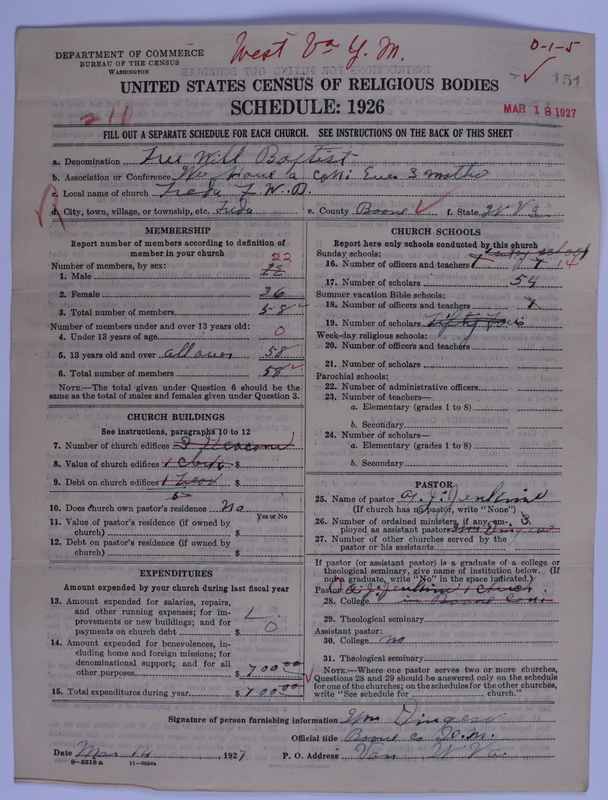 West Va Y. M.
0-1-5
DEPARTMENT OF COMMERCE
BUREAU OF THE CENSUS
WASHINGTON
151
UNITED STATES CENSUS OF RELIGIOUS BODIES
SCHEDULE: 1926
MAR 18 1927
FILL OUT A SEPARATE SCHEDULE FOR EACH CHURCH. SEE INSTRUCTIONS ON THE BACK OF THIS SHEET
a. Denomination Free Will Baptist
b. Association or Conference We have a
c. Local name of church
d. City, town, village, or township, etc.
e. County Boone f. State W Va
MEMBERSHIP
Report number of members according to definition of
member in your church
Number of members, by sex:
22
1. Male
2. Female 36
3. Total number of members 58
Number of members under and over 13 years old:
4. Under 13 years of age 0
5. 13 years old and over all over 58
6. Total number of members 58
NOTE.—The total given under Question 6 should be the
same as the total of males and females given under Question 3.
CHURCH BUILDINGS
See instructions, paragraphs 10 to 12
7. Number of church edifices 3
8. Value of church edifices 1 $
9. Debt on church edifices 1 $
10. Does church own pastor's residence No
Yes or No
11. Value of pastor's residence (if owned by
church) $
12. Debt on pastor's residence (if owned by
church) $
EXPENDITURES
Amount expended by your church during last fiscal year
13. Amount expended for salaries, repairs,
and other running expenses; for im-
provements or new buildings; and for
payments on church debt $ 0
14. Amount expended for benevolences,
including home and foreign missions; for
denominational support; and for all
other purposes $ 700
15. Total expenditures during year $ 700
CHURCH SCHOOLS
Report here only schools conducted by this church
Sunday schools: Sunday school
16. Number of officers and teachers 7 7 14
17. Number of scholars 54
Summer vacation Bible schools:
18. Number of officers and teachers
19. Number of scholars fifty four
Week-day religious schools:
20. Number of officers and teachers
21. Number of scholars
Parochial schools:
22. Number of administrative officers
23. Number of teachers—
a. Elementary (grades 1 to 8)
b. Secondary
24. Number of scholars—
a. Elementary (grades 1 to 8)
b. Secondary
PASTOR
25. Name of pastor
(If church has no pastor, write "None")
26. Number of ordained ministers, if any, em- 3
ployed as assistant pastors
27. Number of other churches served by the
pastor or his assistants
If pastor (or assistant pastor) is a graduate of a college or
theological seminary, give name of institution below. (If
not a graduate, write "No" in the space indicated.)
Pastor:
28. College in Boone
29. Theological seminary
Assistant pastor:
30. College no
31. Theological seminary
NOTE.—Where one pastor serves two or more churches,
Questions 28 and 29 should be answered only on the schedule
for one of the churches; on the schedules for the other churches,
write "See schedule for church."
Signature of person furnishing information Wm Dingess
Official title Boone co
Date Mar 14, 1927 P. O. Address Van W Va
8-5518 a 11-9054a